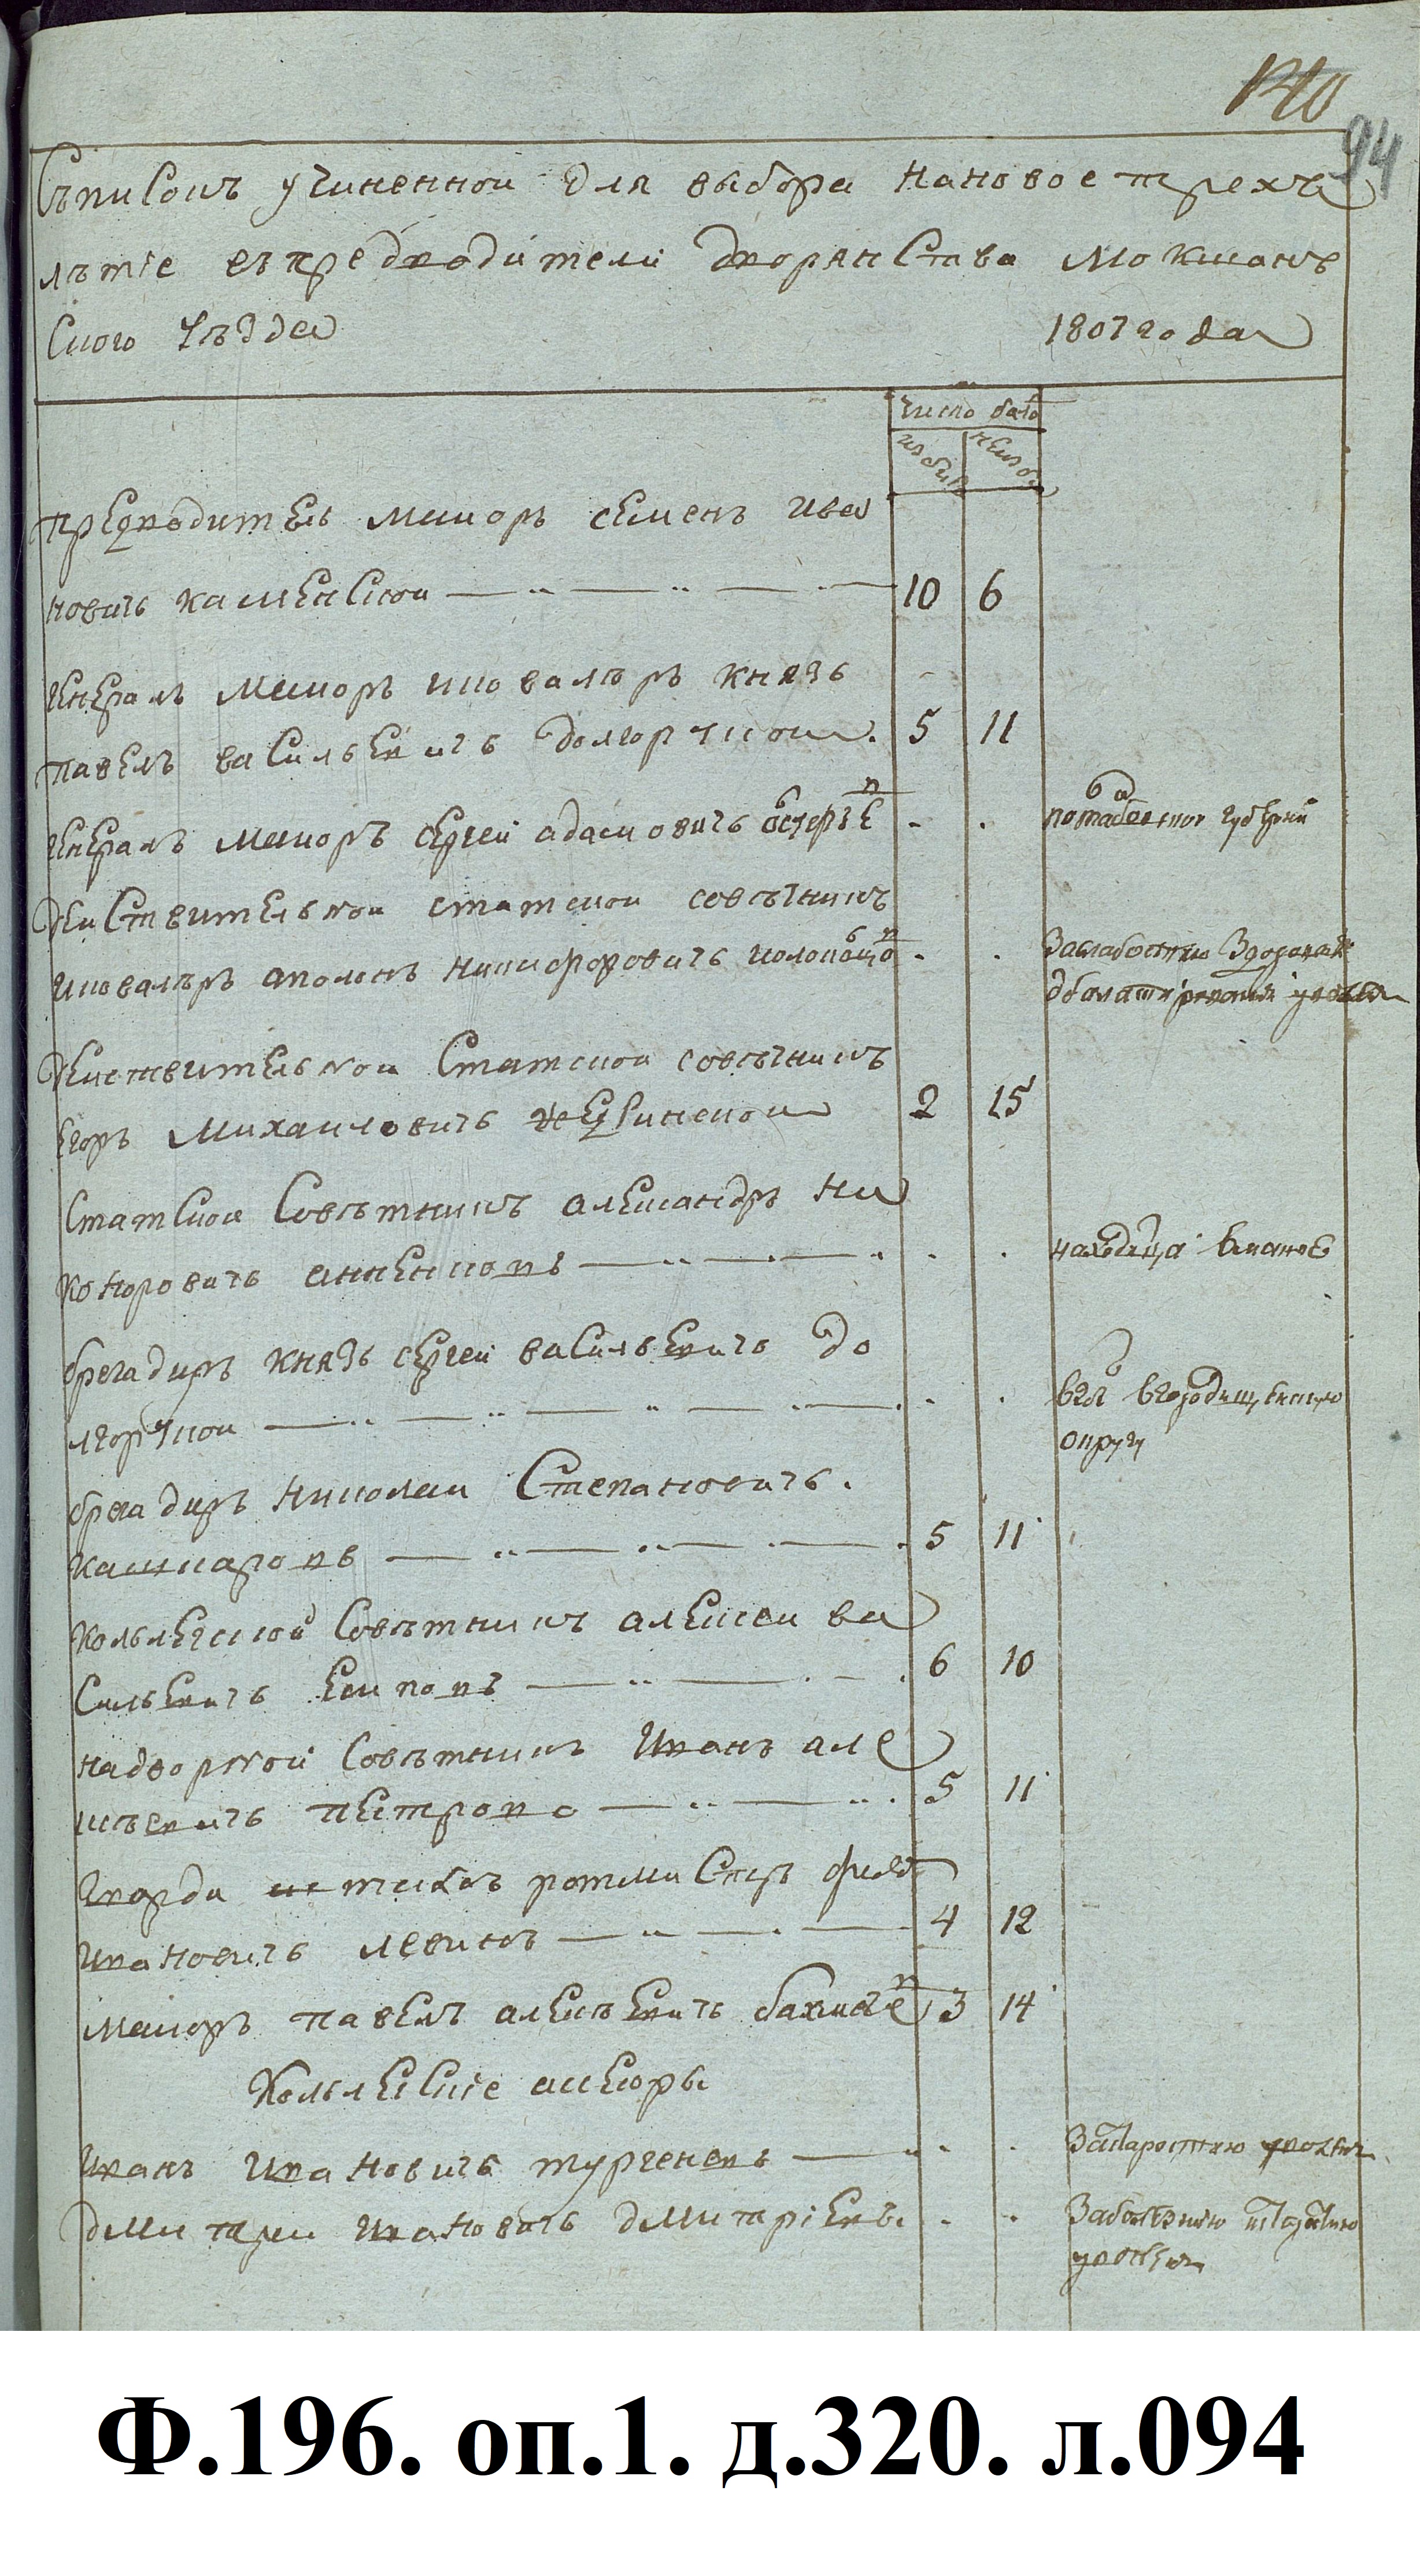 140
94
Съписокъ учиненной для выбора нановое трехъ
лѣтіе въпредводители дворянства мокшанъ
скаго уѣзда 1807 года
число бало
избир неизб
предводитель маиоръ семенъ ива
новичь каменской 10 6
генералъ маиоръ иковалѣръ князь
павелъ васильевичь долгорукои 5 11
генералъ маиоръ сергей адамовичь
потамбовской губерни
действительной статской совѣтникъ
иковалѣръ аполонъ никифоровичь
заслабостию здоровья
действительной статской совѣтникъ
егоръ михаиловичь 2 15
статской совѣтникъ александръ ни
каноровичь анненковъ
находица
брегадиръ князь сергей васильевичь до
лгорукой
вгородищенскую
округу
брегадиръ николаи степановичь
кашкаровъ 5 11
кольлежской совѣтникъ алексеи ва
сильевичь 6 10
надворной совѣтникъ иванъ але
ксѣевичь пестрово 5 11
гварди ротмистръ
ивановичь левинъ 4 12
маиоръ павелъ алексѣевичь бахметев 3 14
Кольлеские асесоры
иванъ ивановичь тургеневъ
застаростию уволен
дмитреи ивановичь дмитріевъ
заболезнию
уволен
Ф.196. оп.1. д.320. л.094